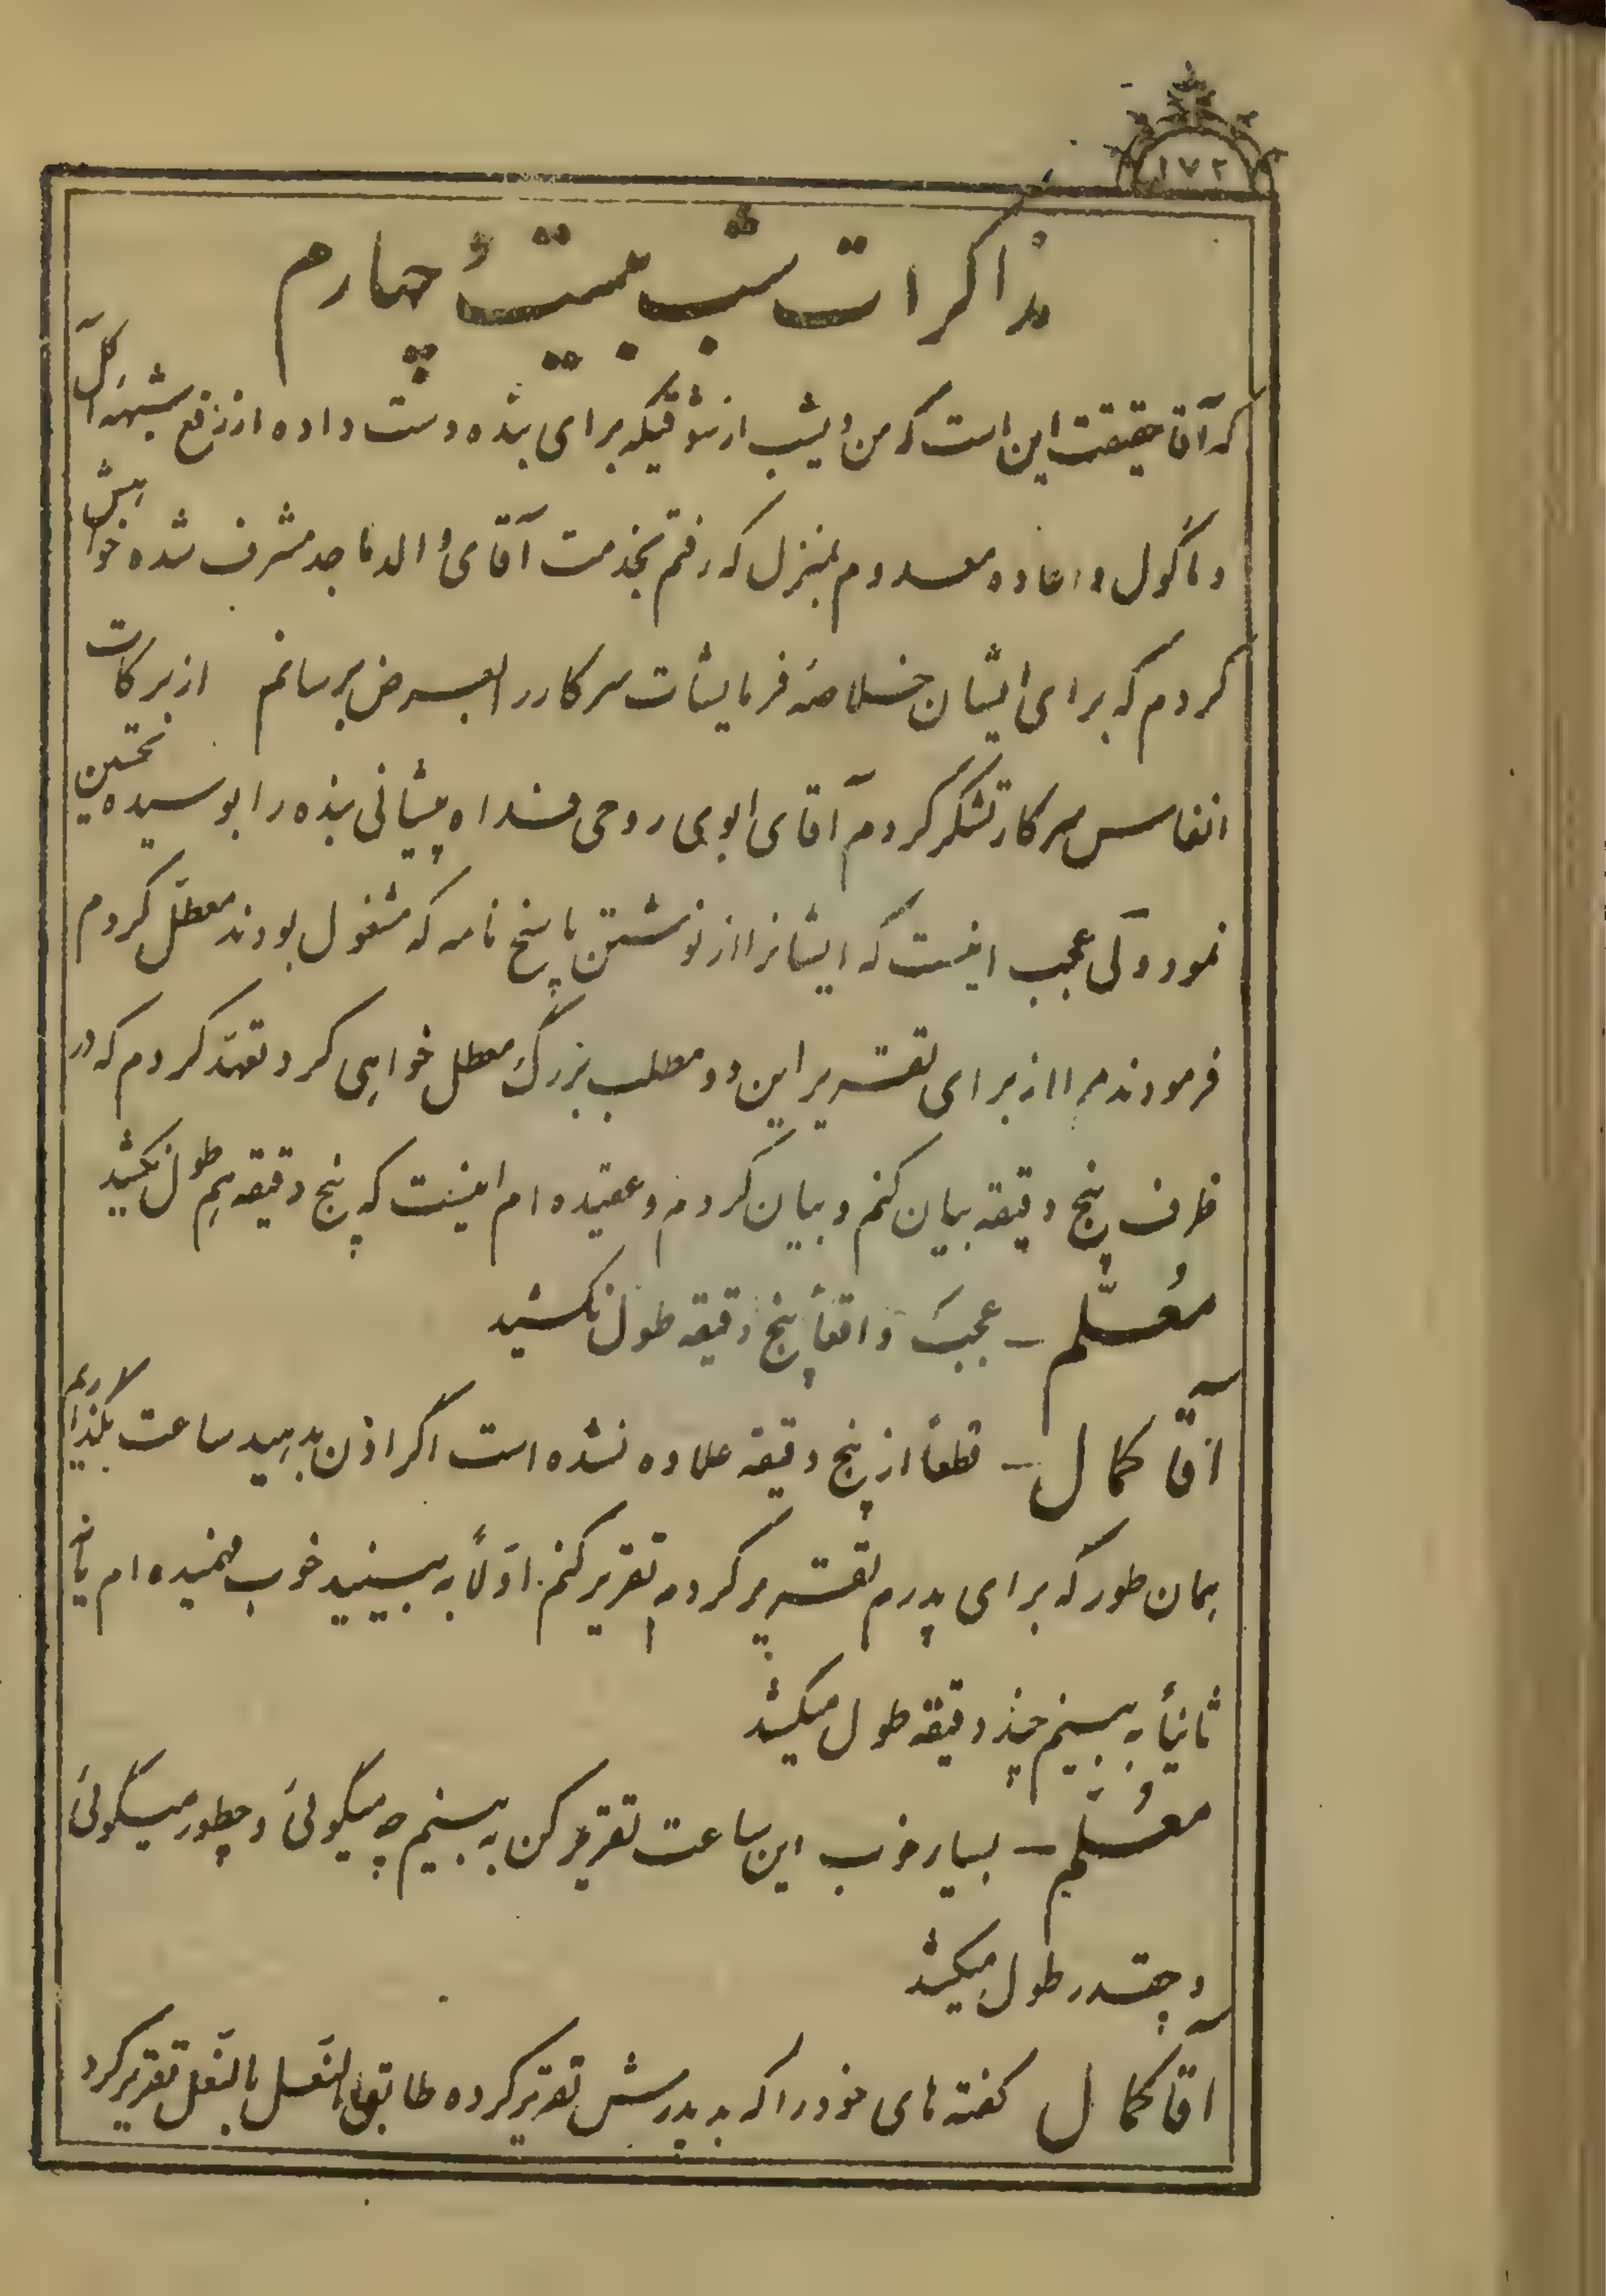 ١٧٢
مذاکرات شب بیست و چهارم
که آقا حقیقت این است که من دیشب از شوقیکه برای بنده دست داده از رفع شبهه آکل
و مأکول و اعاده معدوم بمنزل که رفتم بخدمت آقای والد ماجد مشرف شده خواهش
کردم که برای ایشان خلاصهٔ فرمایشات سرکار را بعرض برسانم از برکات
انفاس سرکار تشکر کردم آقای ابوی روحی فداه پیشانی بنده را بوسیده تحسین
نمود ولی عجب اینست که ایشانرا از نوشتن پاسخ نامه که مشغول بودند معطل کردم
فرمودند مرا از برای تقریر این دو مطلب بزرگ معطل خواهی کرد تعهد کردم که در
ظرف پنج دقیقه بیان کنم و بیان کردم و عقیده ام اینست که پنج دقیقه هم طول نکشید
معلّم – عجب واقعاً پنج دقیقه طول نکشید
آقا کمال – قطعاً از پنج دقیقه علاوه نشده است اگر اذن بدهید ساعت بگذاریم
بهمان طور که برای پدرم تقریر کردم تقریر کنم اولاً به بینید خوب فهمیده ام یا نه
ثانیاً به بینیم چند دقیقه طول میکشد
معلّم – بسیار خوب این ساعت تقریر کن به بینیم چه میگوئی و چطور میگوئی
و چقدر طول میکشد
آقا کمال گفته های خود را که به پدرش تقریر کرده طابق النعل بالنعل تقریر کرد